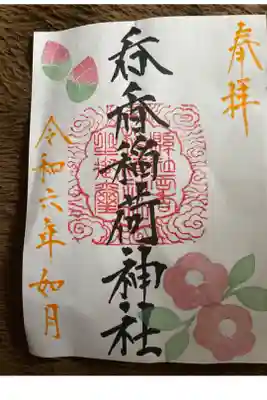 奉拝
呑香稲荷神社
令和六年如月